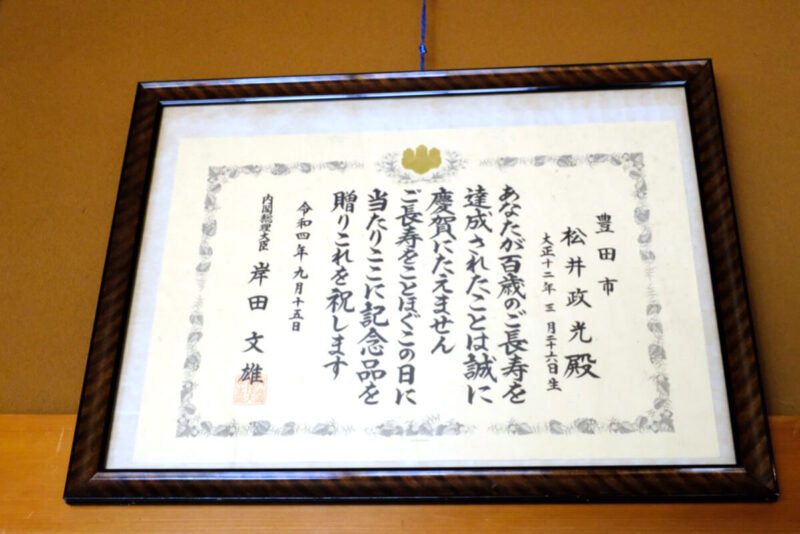 豊田市
松井政光殿
大正十二年三月二十六日生
あなたが百歳のご長寿を
達成されたことは誠に
慶賀にたえません
ご長寿をことほぐこの日に
当たりここに記念品を
贈りこれを祝します
令和四年九月十五日
内閣総理大臣 岸田文雄